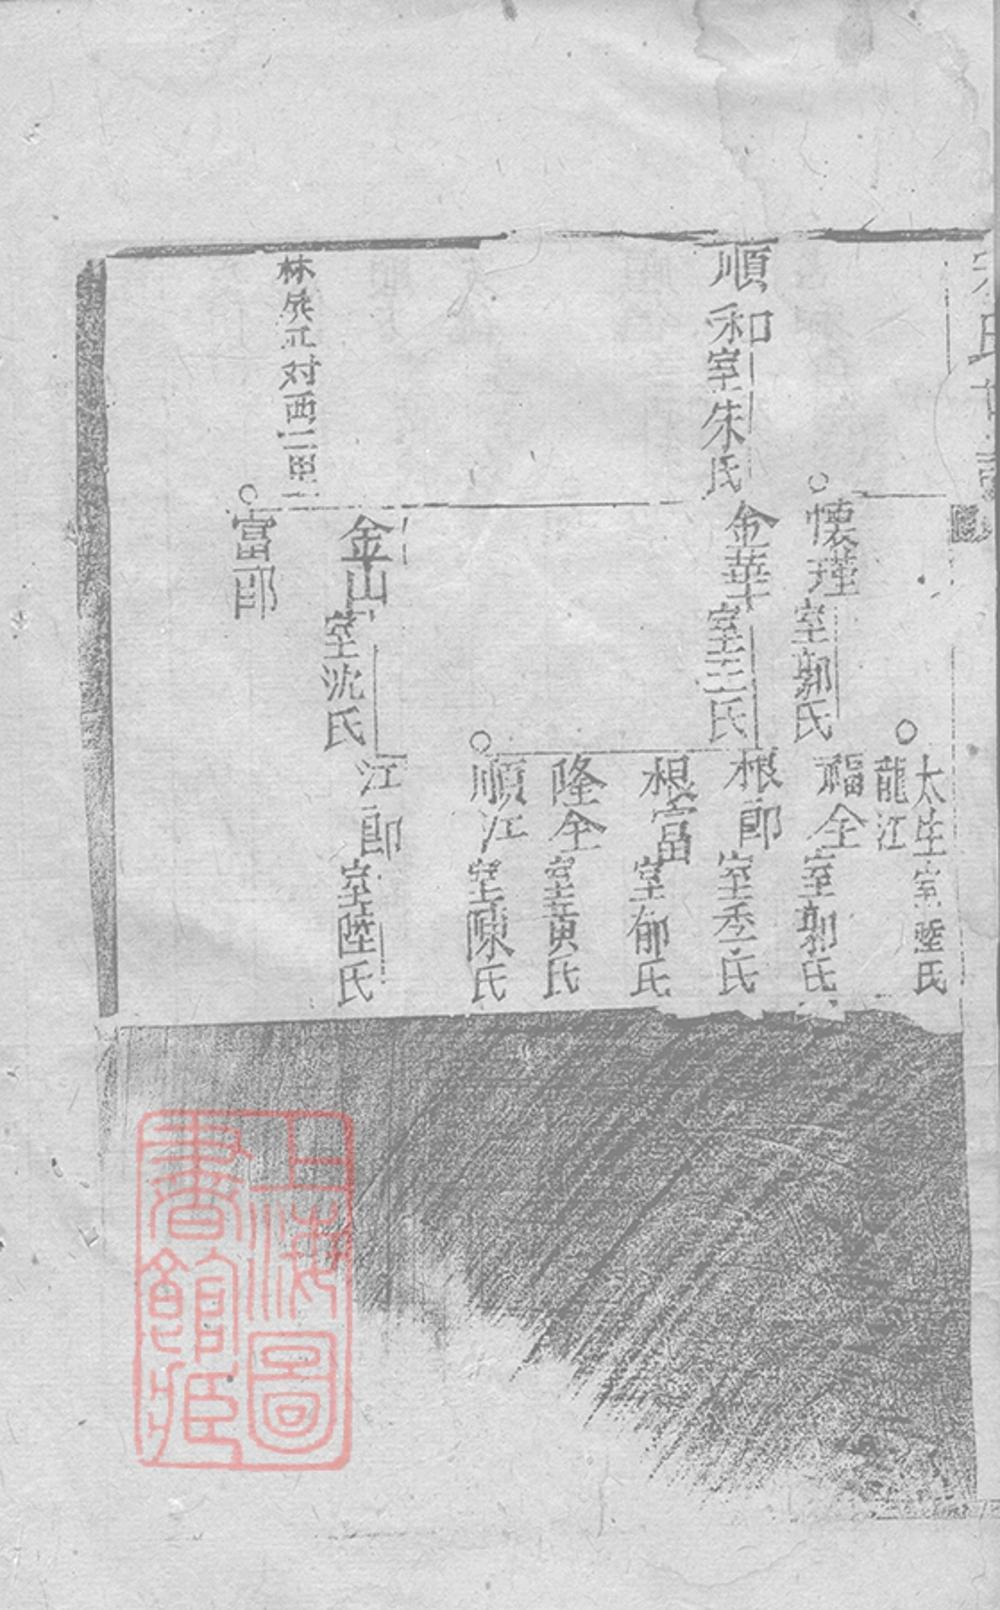 順和室朱氏
林
对西三里
懷瑾室郭氏
金華室王氏
金山室沈氏
富郎
太生室陸氏
龍江
福全室郭氏
根郎室季氏
根富室郁氏
隆全室黃氏
順江室陳氏
江郎室陸氏
上海圖
書館藏